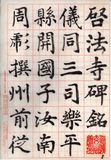 啓法寺碑銘
儀同三司樂平
縣開國子汝南
周彪撰州前從